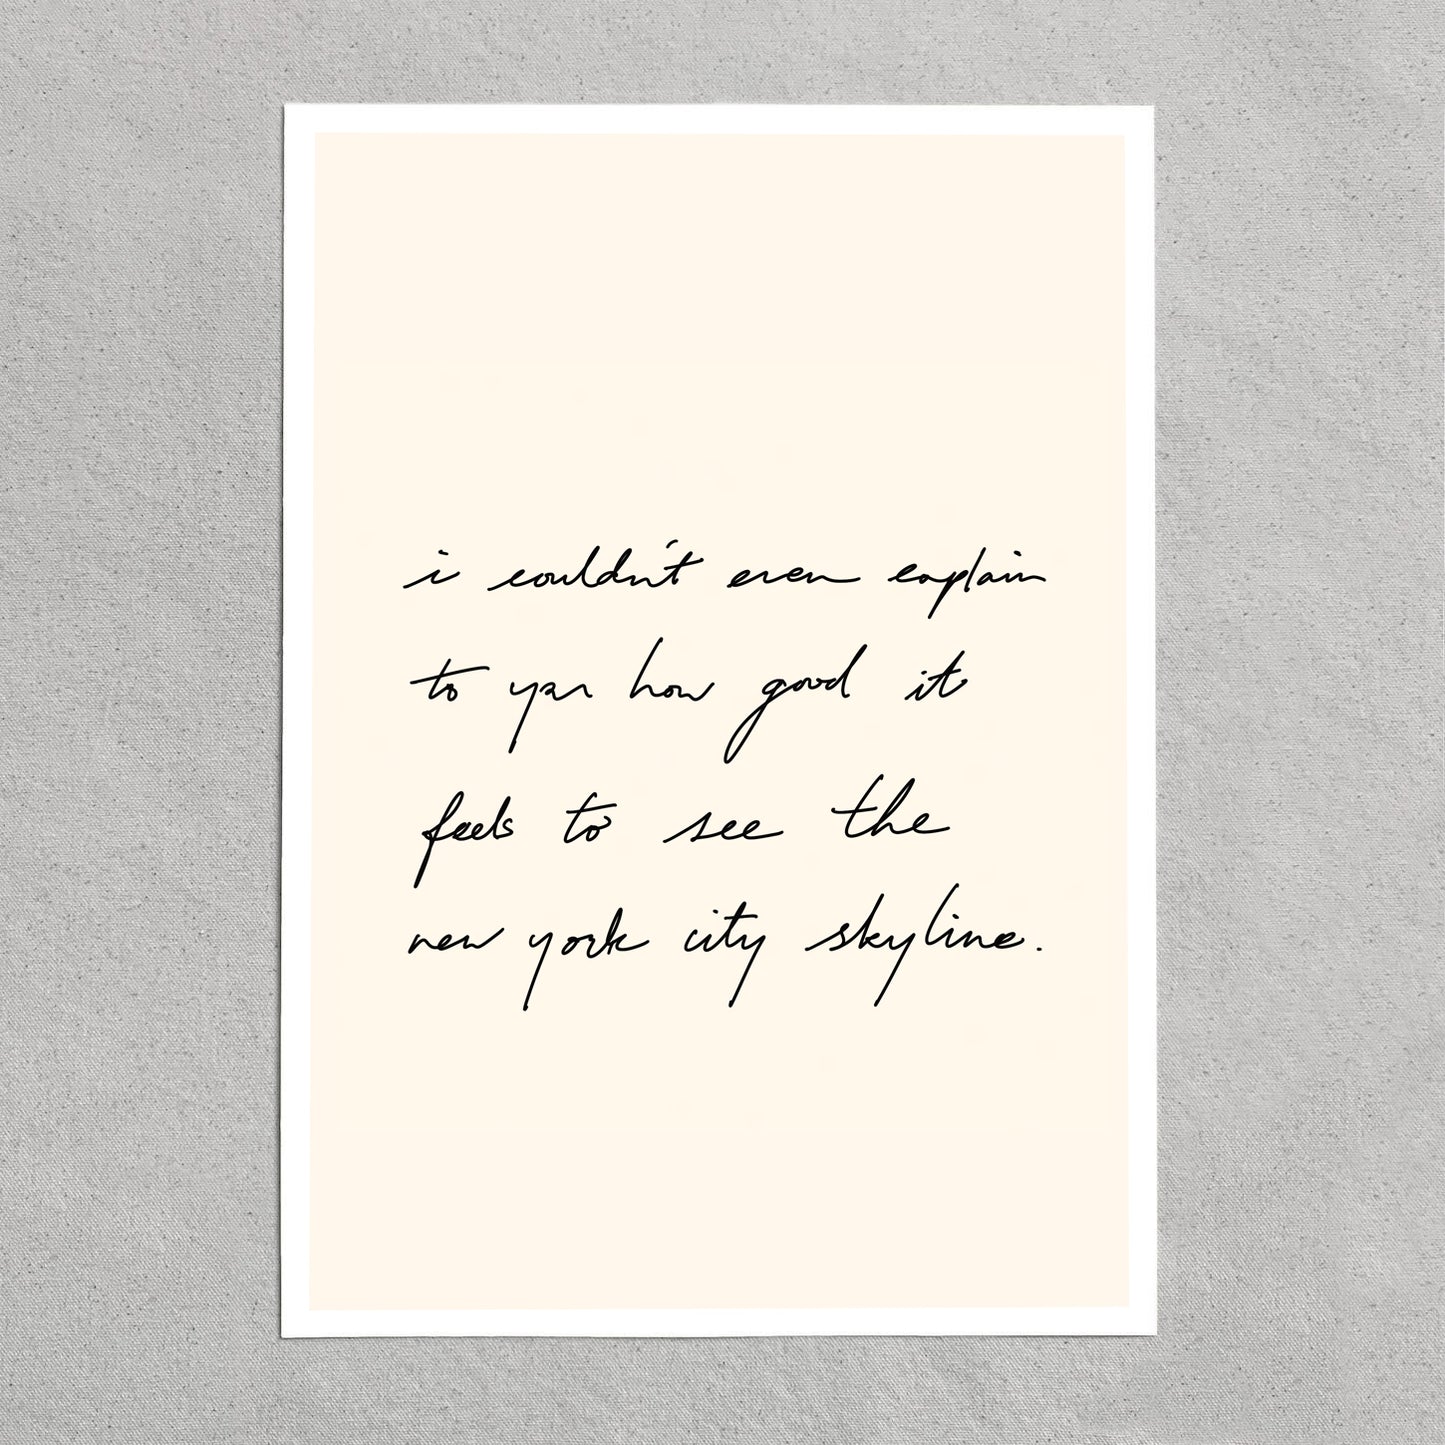 i couldn't even explain
to you how good it
feels to see the
new york city skyline.